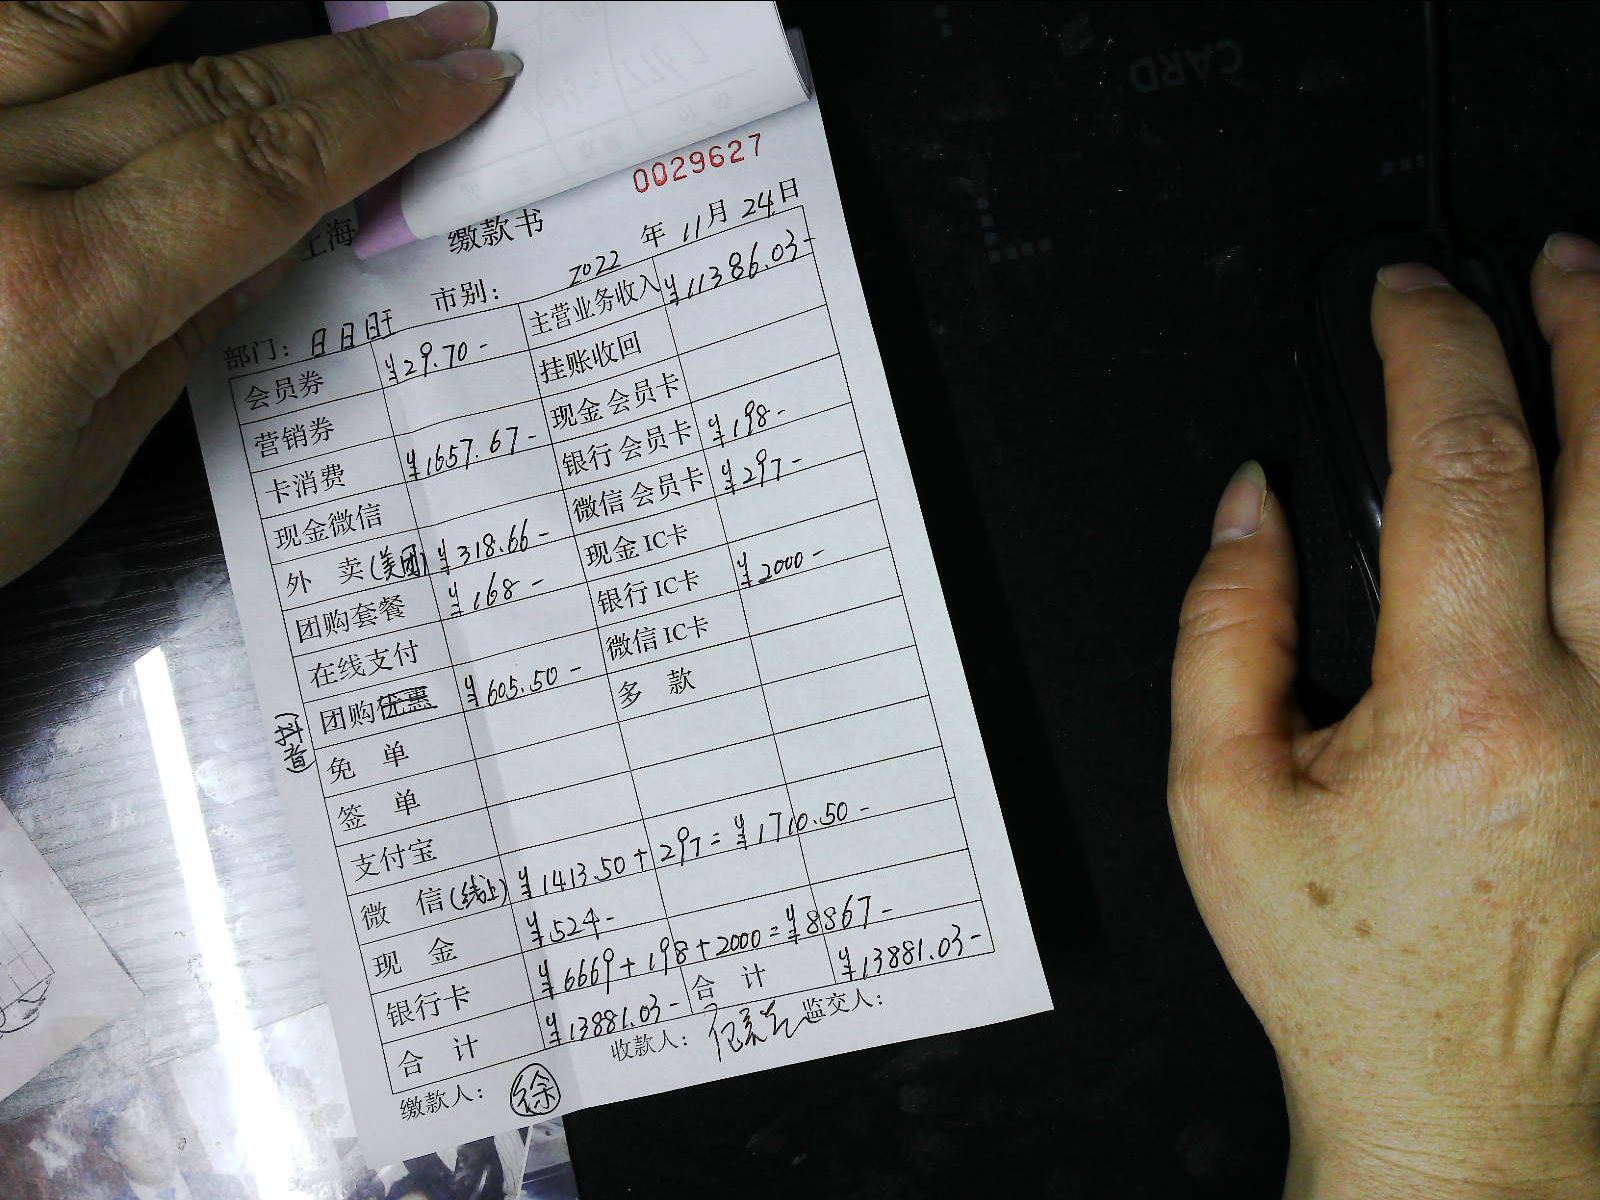 0029627
上海 缴款书
2022 年 11 月 24 日
部门： 市别：
会员券 ¥29.70- 主营业务收入 ¥11386.03-
营销券 挂账收回
卡消费 ¥1657.67- 现金会员卡
现金微信 银行会员卡 ¥198-
外 卖(美团) ¥318.66- 微信会员卡 ¥297-
团购套餐 ¥168- 现金IC卡
在线支付 银行IC卡 ¥2000-
团购优惠 ¥605.50- 微信IC卡
免 单 多 款
签 单
支付宝
微 信(线上) ¥1413.50+297=¥1710.50-
现 金 ¥524-
银行卡 ¥6669+198+2000=¥8867-
合 计 ¥13881.03- 合 计 ¥13881.03-
缴款人： 徐 收款人： 监交人：
CARD